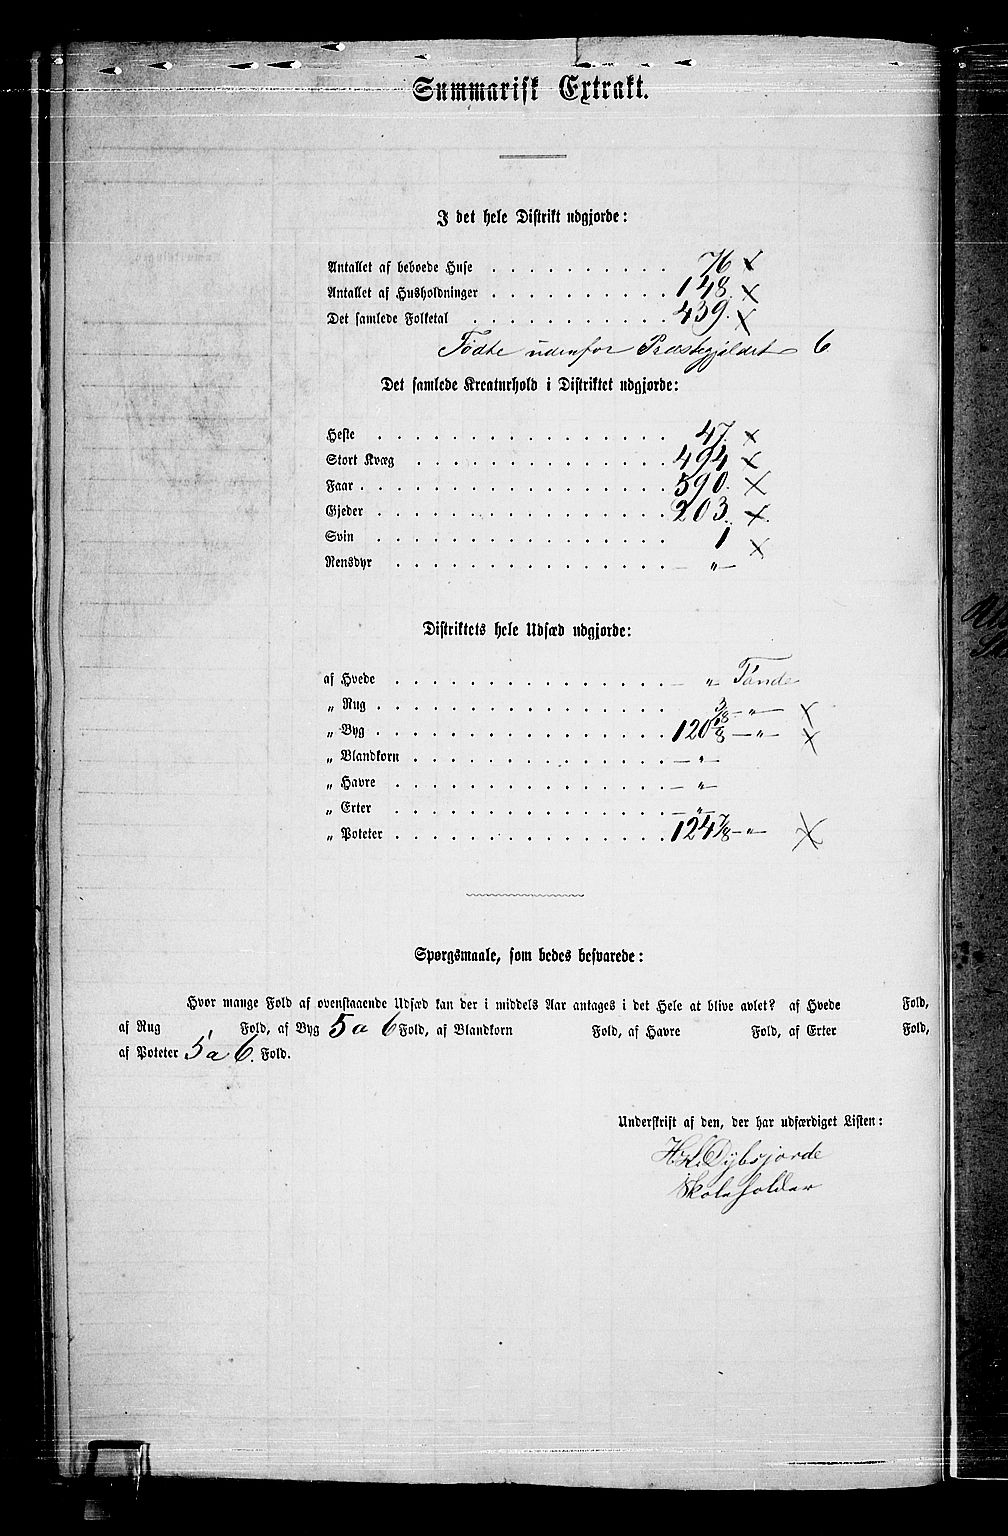 Summarisk Extrakt.
I det hele Distrikt udgjorde:
Antallet af beboede Huse . . . . . . . . . . 76 x
Antallet af Husholdninger . . . . . . . . . . 148. x
Det samlede Folketal . . . . . . . . . . . 439. x
Fødte udenfor Præstegjeldet 6
Det samlede Kreaturhold i Distriktet udgjorde:
Heste . . . . . . . . . . . . . . . . 47. x
Stort Kvæg . . . . . . . . . . . . . . 494 x
Faar . . . . . . . . . . . . . . . . . 590. x
Gjeder . . . . . . . . . . . . . . . . 203. x
Svin . . . . . . . . . . . . . . . . 1 x
Rensdyr . . . . . . . . . . . . . . . — „ —
Distriktets hele Udsæd udgjorde:
af Hvede . . . . . . . . . . . . . . . — „ — Tønde
„ Rug . . . . . . . . . . . . . . . . 3/8 — „ — x
„ Byg . . . . . . . . . . . . . . . . 120 — „ — x
„ Blandkorn . . . . . . . . . . . . . . — „ —
„ Havre . . . . . . . . . . . . . . . — „ —
„ Erter . . . . . . . . . . . . . . . — „ —
„ Poteter . . . . . . . . . . . . . . . 124 7/8 — „ — x
Spørgsmaale, som bedes besvarede:
Hvor mange Fold af ovenstaaende Udsæd kan der i middels Aar antages i det Hele at blive avlet? af Hvede Fold,
af Rug Fold, af Byg 5 a 6 Fold, af Blandkorn Fold, af Havre Fold, af Erter Fold,
af Poteter 5 a 6. Fold.
Underskrift af den, der har udfærdiget Listen:
Dybsjorde
Skoleholder